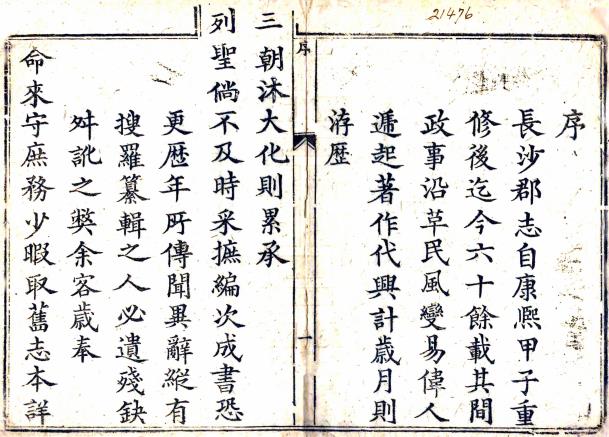 21476
序
長沙郡志自康熙甲子重
修後迄今六十餘載其間
政事沿革民風變易偉人
遞起著作代興計歲月則
洊歷
序
一
三朝沐大化則累承
列聖倘不及時采摭編次成書恐
更歷年所傳聞異辭縱有
搜羅纂輯之人必遺殘缺
舛訛之獘余客歲奉
命來守庶務少暇取舊志本詳